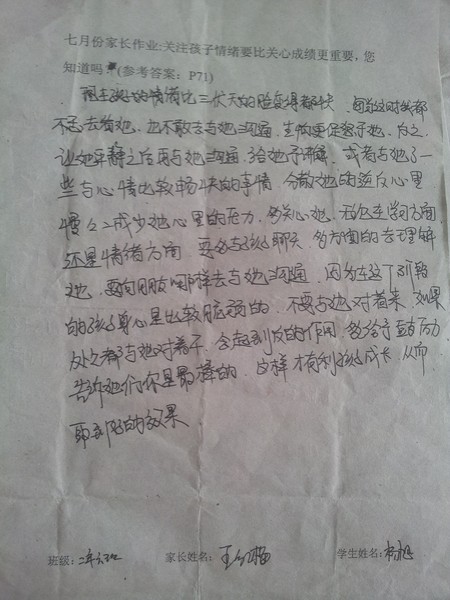 七月份家长作业:关注孩子情绪要比关心成绩更重要，您
知道吗？(参考答案：P71)
的情绪比三伏天的脸变得都快 每当这时我都
不忍去看她，也不敢去与她沟通，生怕更深怒于她，为之，
让她平静之后再与她沟通，给她予讲解，或者与她了一
些与心情比较畅快的事情，分散她的逆反心里
慢々减少她心里的压力，多关心她，无论在学习方面
还是情绪方面，要多与孩子聊天，多方面的去理解
她，要向朋友那样去与她沟通，因为在这个阶段
的孩子身心里比较脆弱的，不要与她对着来，如果
处处都与她对着干，会起到反的作用，多给予鼓励
告诉她们你是最棒的，这样才有利孩子成长，从而
的效果
班级：二年六班 家长姓名：王红梅 学生姓名：杨旭